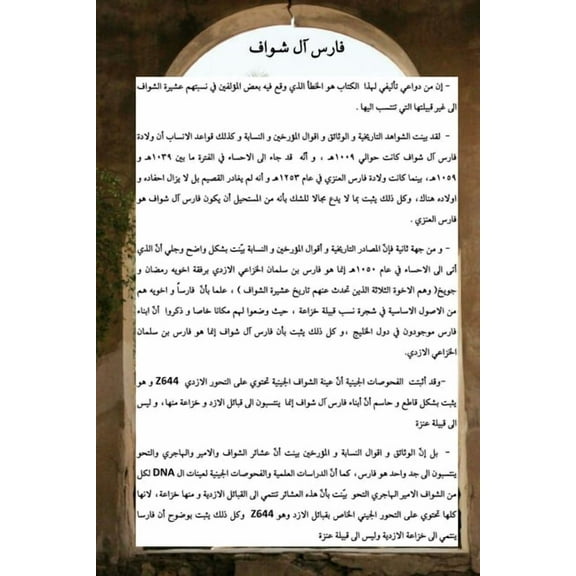 فارس آل شواف
- إن من دواعي تأليفي لهذا الكتاب هو الخطأ الذي وقع فيه بعض المؤلفين في نسبتهم عشيرة الشواف
الى غير قبيلتها التي تنتسب اليها .
- لقد بينت الشواهد التاريخية و الوثائق و اقوال المؤرخين و النسابة و كذلك قواعد الانساب أن ولادة
فارس آل شواف كانت حوالي ١٠٠٩هـ ، و أنّه قد جاء الى الاحساء في الفترة ما بين ١٠٣٩هـ و
١٠٥٩هـ، بينما كانت ولادة فارس العنزي في عام ١٢٥٣هـ و أنه لم يغادر القصيم بل لا يزال احفاده و
اولاده هناك، وكل ذلك يثبت بما لا يدع مجالا للشك بأنه من المستحيل أن يكون فارس آل شواف هو
فارس العنزي .
- و من جهة ثانية فإنّ المصادر التاريخية و أقوال المؤرخين و النسابة بيّنت بشكل واضح وجلي أنّ الذي
أتى الى الاحساء في عام ١٠٥٠هـ إنما هو فارس بن سلمان الخزاعي الازدي برفقة اخويه رمضان و
جويخ( وهم الاخوة الثلاثة الذين تحدث عنهم تاريخ عشيرة الشواف ) ، علما بأنّ فارساً و اخويه هم
من الاصول الاساسية في شجرة نسب قبيلة خزاعة ، حيث وضعوا لهم مكانا خاصا و ذكروا أنّ ابناء
فارس موجودون في دول الخليج ،و كل ذلك يثبت بأن فارس آل شواف إنما هو فارس بن سلمان
الخزاعي الازدي.
-وقد أثبتت الفحوصات الجينية أنّ عينة الشواف الجينية تحتوي على التحور الازدي Z644 و هو
يثبت بشكل قاطع و حاسم أنّ أبناء فارس آل شواف إنما ينتسبون الى قبائل الازد و خزاعة منها، و ليس
الى قبيلة عنزة
- بل إنّ الوثائق و اقوال النسابة و المؤرخين بينت أنّ عشائر الشواف والامير والهاجري والنحو
ينتسبون الى جد واحد هو فارس، كما أنّ الدراسات العلمية والفحوصات الجينية لعينات ال DNA لكل
من الشواف الامير الهاجري النحو بيّنت بأنّ هذه العشائر تنتمي الى القبائل الازدية و منها خزاعة، لانها
كلها تحتوي على التحور الجيني الخاص بقبائل الازد وهو Z644 وكل ذلك يثبت بوضوح أن فارسا
ينتمي الى خزاعة الازدية وليس الى قبيلة عنزة